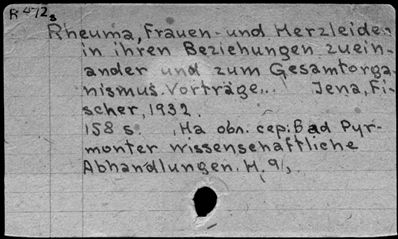 R 412s
Rheuma, Frauen- und Herzleiden
in ihren Beziehungen zuein-
ander und zum Gesamtorga-
nismus. Vorträge... Jena, Fi-
scher, 1932.
158 s. На обл. сер: Bad Pyr-
monter wissenschaftliche
Abhandlungen. H. 9/